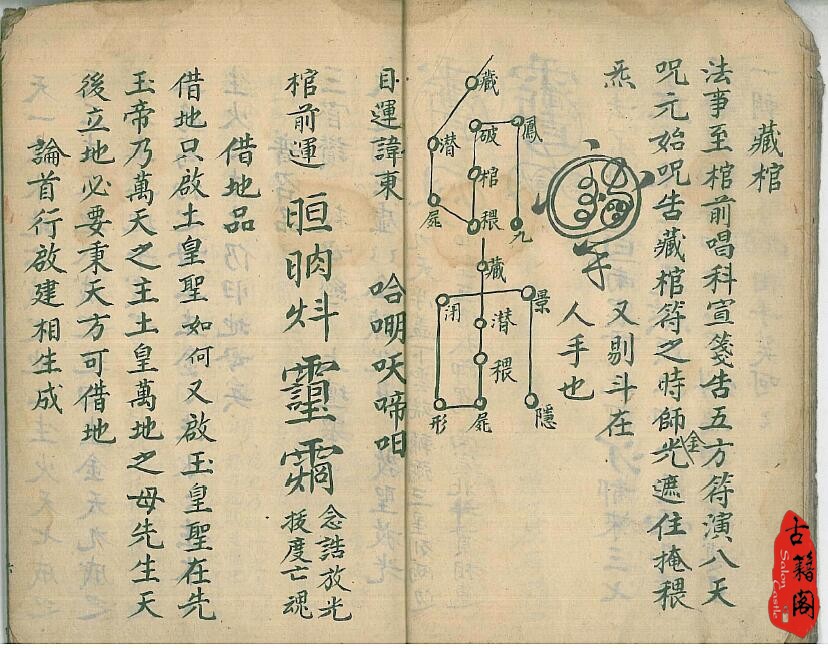 藏棺
法事至棺前唱科宣箋告五方符演八天
呪元始呪告藏棺符之時師金光遮住掩穢
炁
又剔斗在
人手也
藏
潜
屍
破
棺
穢
鳳
九
藏
潜
穢
屍
形
闭
景
隱
目運諱東
哈嘲吙啼呾
棺前運
念誥放光
援度亡魂
借地品
借地只啟土皇聖如何又啟玉皇聖在先
玉帝乃萬天之主土皇萬地之母先生天
後立地必要秉天方可借地
論首行啟建相生成
古籍阁
Salon Castle